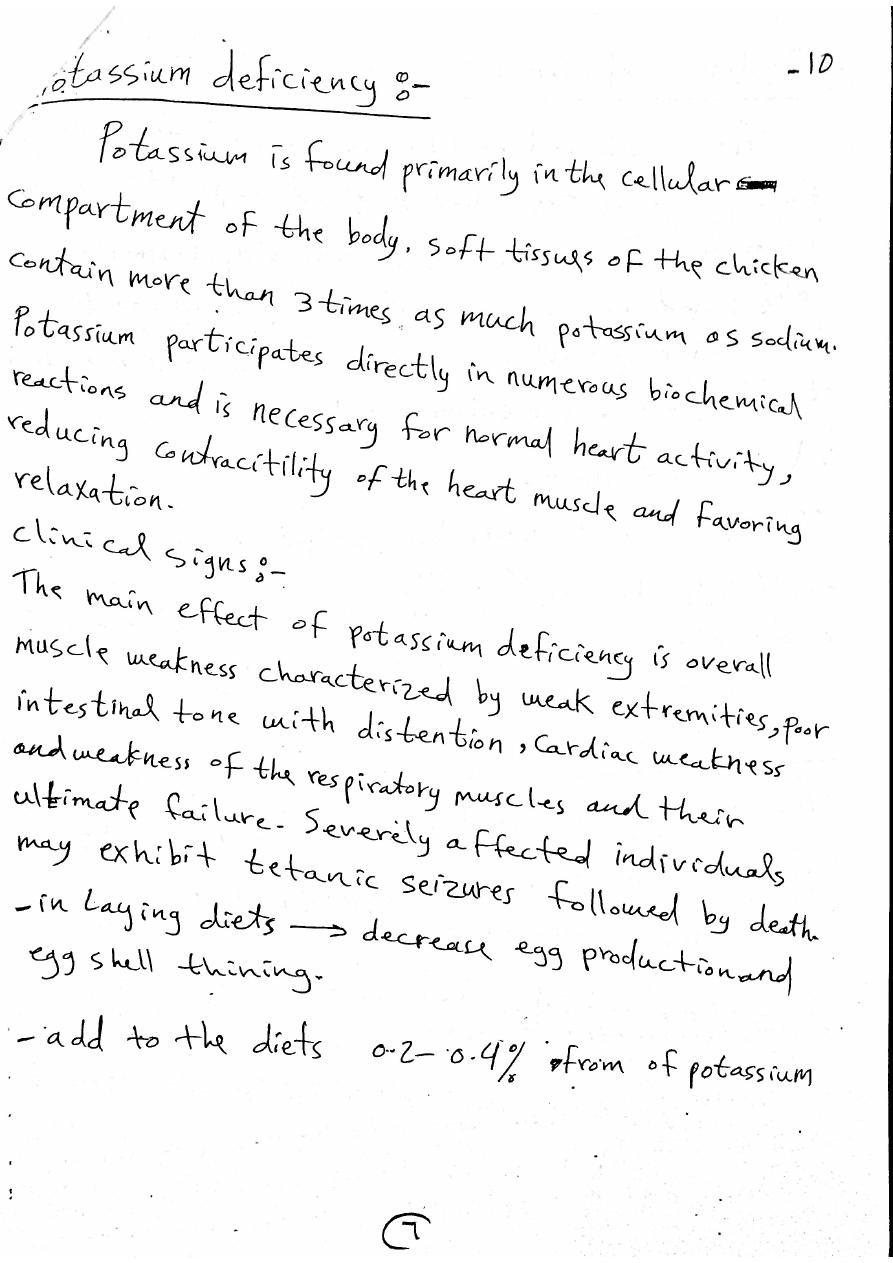 -10
otassium deficiency :-
Potassium is found primarily in the cellular
Compartment of the body. Soft tissues of the chicken
contain more than 3 times as much potassium as sodium.
Potassium participates directly in numerous biochemical
reactions and is necessary for normal heart activity,
reducing contracitility of the heart muscle and favoring
relaxation.
clinical signs :-
The main effect of potassium deficiency is overall
muscle weakness characterized by weak extremities, poor
intestinal tone with distention, Cardiac weakness
and weakness of the respiratory muscles and their
ultimate failure. Severely affected individuals
may exhibit tetanic seizures followed by death.
- in Laying diets → decrease egg production and
egg shell thining.
- add to the diets 0.2- 0.4% from of potassium
7